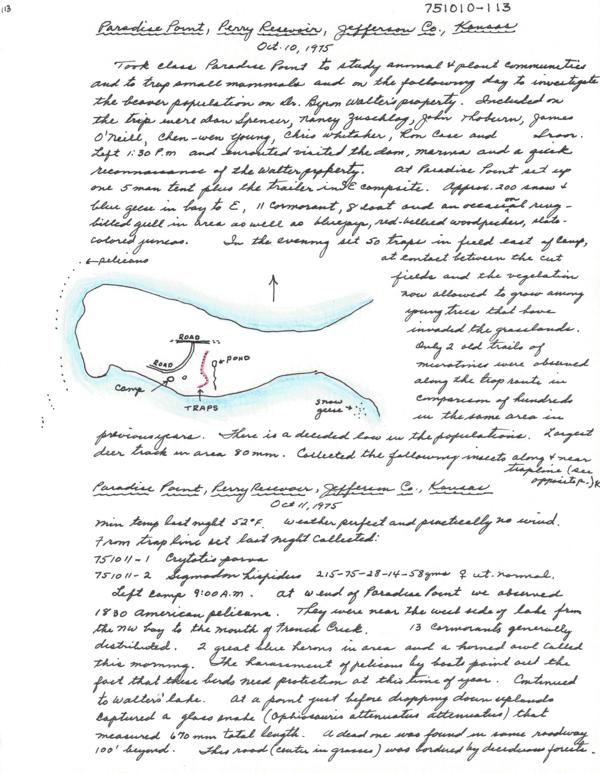 113
751010-113
Paradise Point, Perry Resevoir, Jefferson Co., Kansas
Oct. 10, 1975
Took class Paradise Point to study animal & plant communities
and to trap small mammals and on the following day to investigate
the beaver population on Dr. Byron Walter's property. Included on
the trip were Dan Spencer, Nancy Zuschlag, John Thoburn, James
O'Neill, Chen-wen Young, Chris Whitaker, Ron Case and
Left 1:30 P.m. and enrouted visited the dam, marina and a quick
reconnaissance of the Walter property. At Paradise Point set up
one 5 man tent plus the trailer in E campsite. Approx. 200 snow &
blue geese in bay to E, 11 Cormorant, 8 coot and an occasional ring-
billed gull in area as well as bluejays, red-bellied woodpeckers, slate-
colored juncos. In the evening set 50 traps in field east of camp,
at contact between the cut
fields and the vegetation
now allowed to grow among
young trees that have
invaded the grasslands.
Only 2 old trails of
microtines were observed
along the trap route in
comparison of hundreds
in the same area in
←pelicans
ROAD
ROAD
POND
Camp
TRAPS
snow
geese→
previous years. There is a decided low in the populations. Largest
deer track in area 80mm. Collected the following insects along & near
trapline (see
opposite p.)
Paradise Point, Perry Resevoir, Jefferson Co., Kansas
Oct 11, 1975
Min temp last night 52°F. Weather perfect and practically no wind.
From trap line set last night collected:
751011-1 Cryptotis parva
751011-2 Sigmodon hispidus 215-75-28-14-58gms ♀ ut. normal.
Left camp 9:00 A.M. At W end of Paradise Point we observed
1830 American pelicans. They were near the west side of lake from
the NW bay to the mouth of French Creek. 13 Cormorants generally
distributed. 2 great blue herons in area and a horned owl called
this morning. The harassment of pelicans by boats point out the
fact that these birds need protection at this time of year. Continued
to Walters' lake. At a point just before dropping down uplands
captured a glass snake (Ophisaurus attenuatus attenuatus) that
measured 670 mm total length. A dead one was found in same roadway
100' beyond. This road (center in grasses) was bordered by deciduous forests.